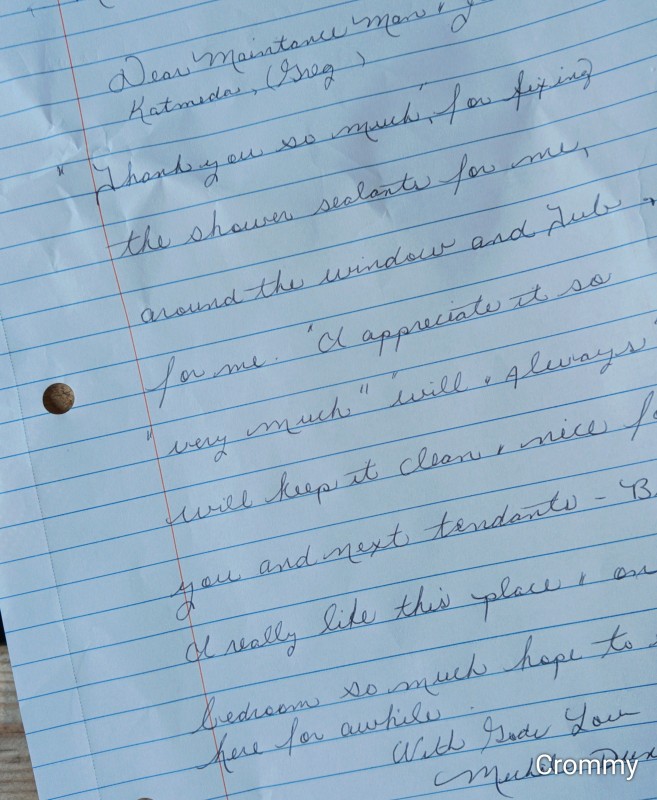 Dear Maintance Man &
Katmeda, (Greg)
"Thank you so much", for fixing
the shower sealants for me,
around the window and Tub
for me. "I appreciate it so
"very much" "will & Always"
will keep it clean & nice
you and next tendants -
I really like this place & on
bedroom so much hope to
here for awhile.
With Gods Love
Crommy